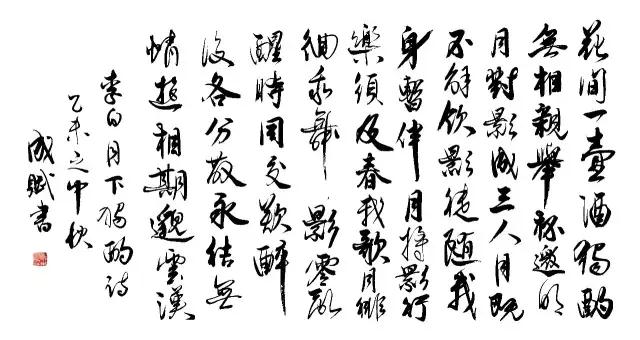 花間一壺酒獨酌
無相親舉杯邀明
月對影成三人月既
不解飲影徒隨我
身暫伴月將影行
樂須及春我歌月徘
徊我舞影零亂
醒時同交歡醉
後各分散永結無
情遊相期邈雲漢
李白月下獨酌詩
乙未之中秋
成賦書